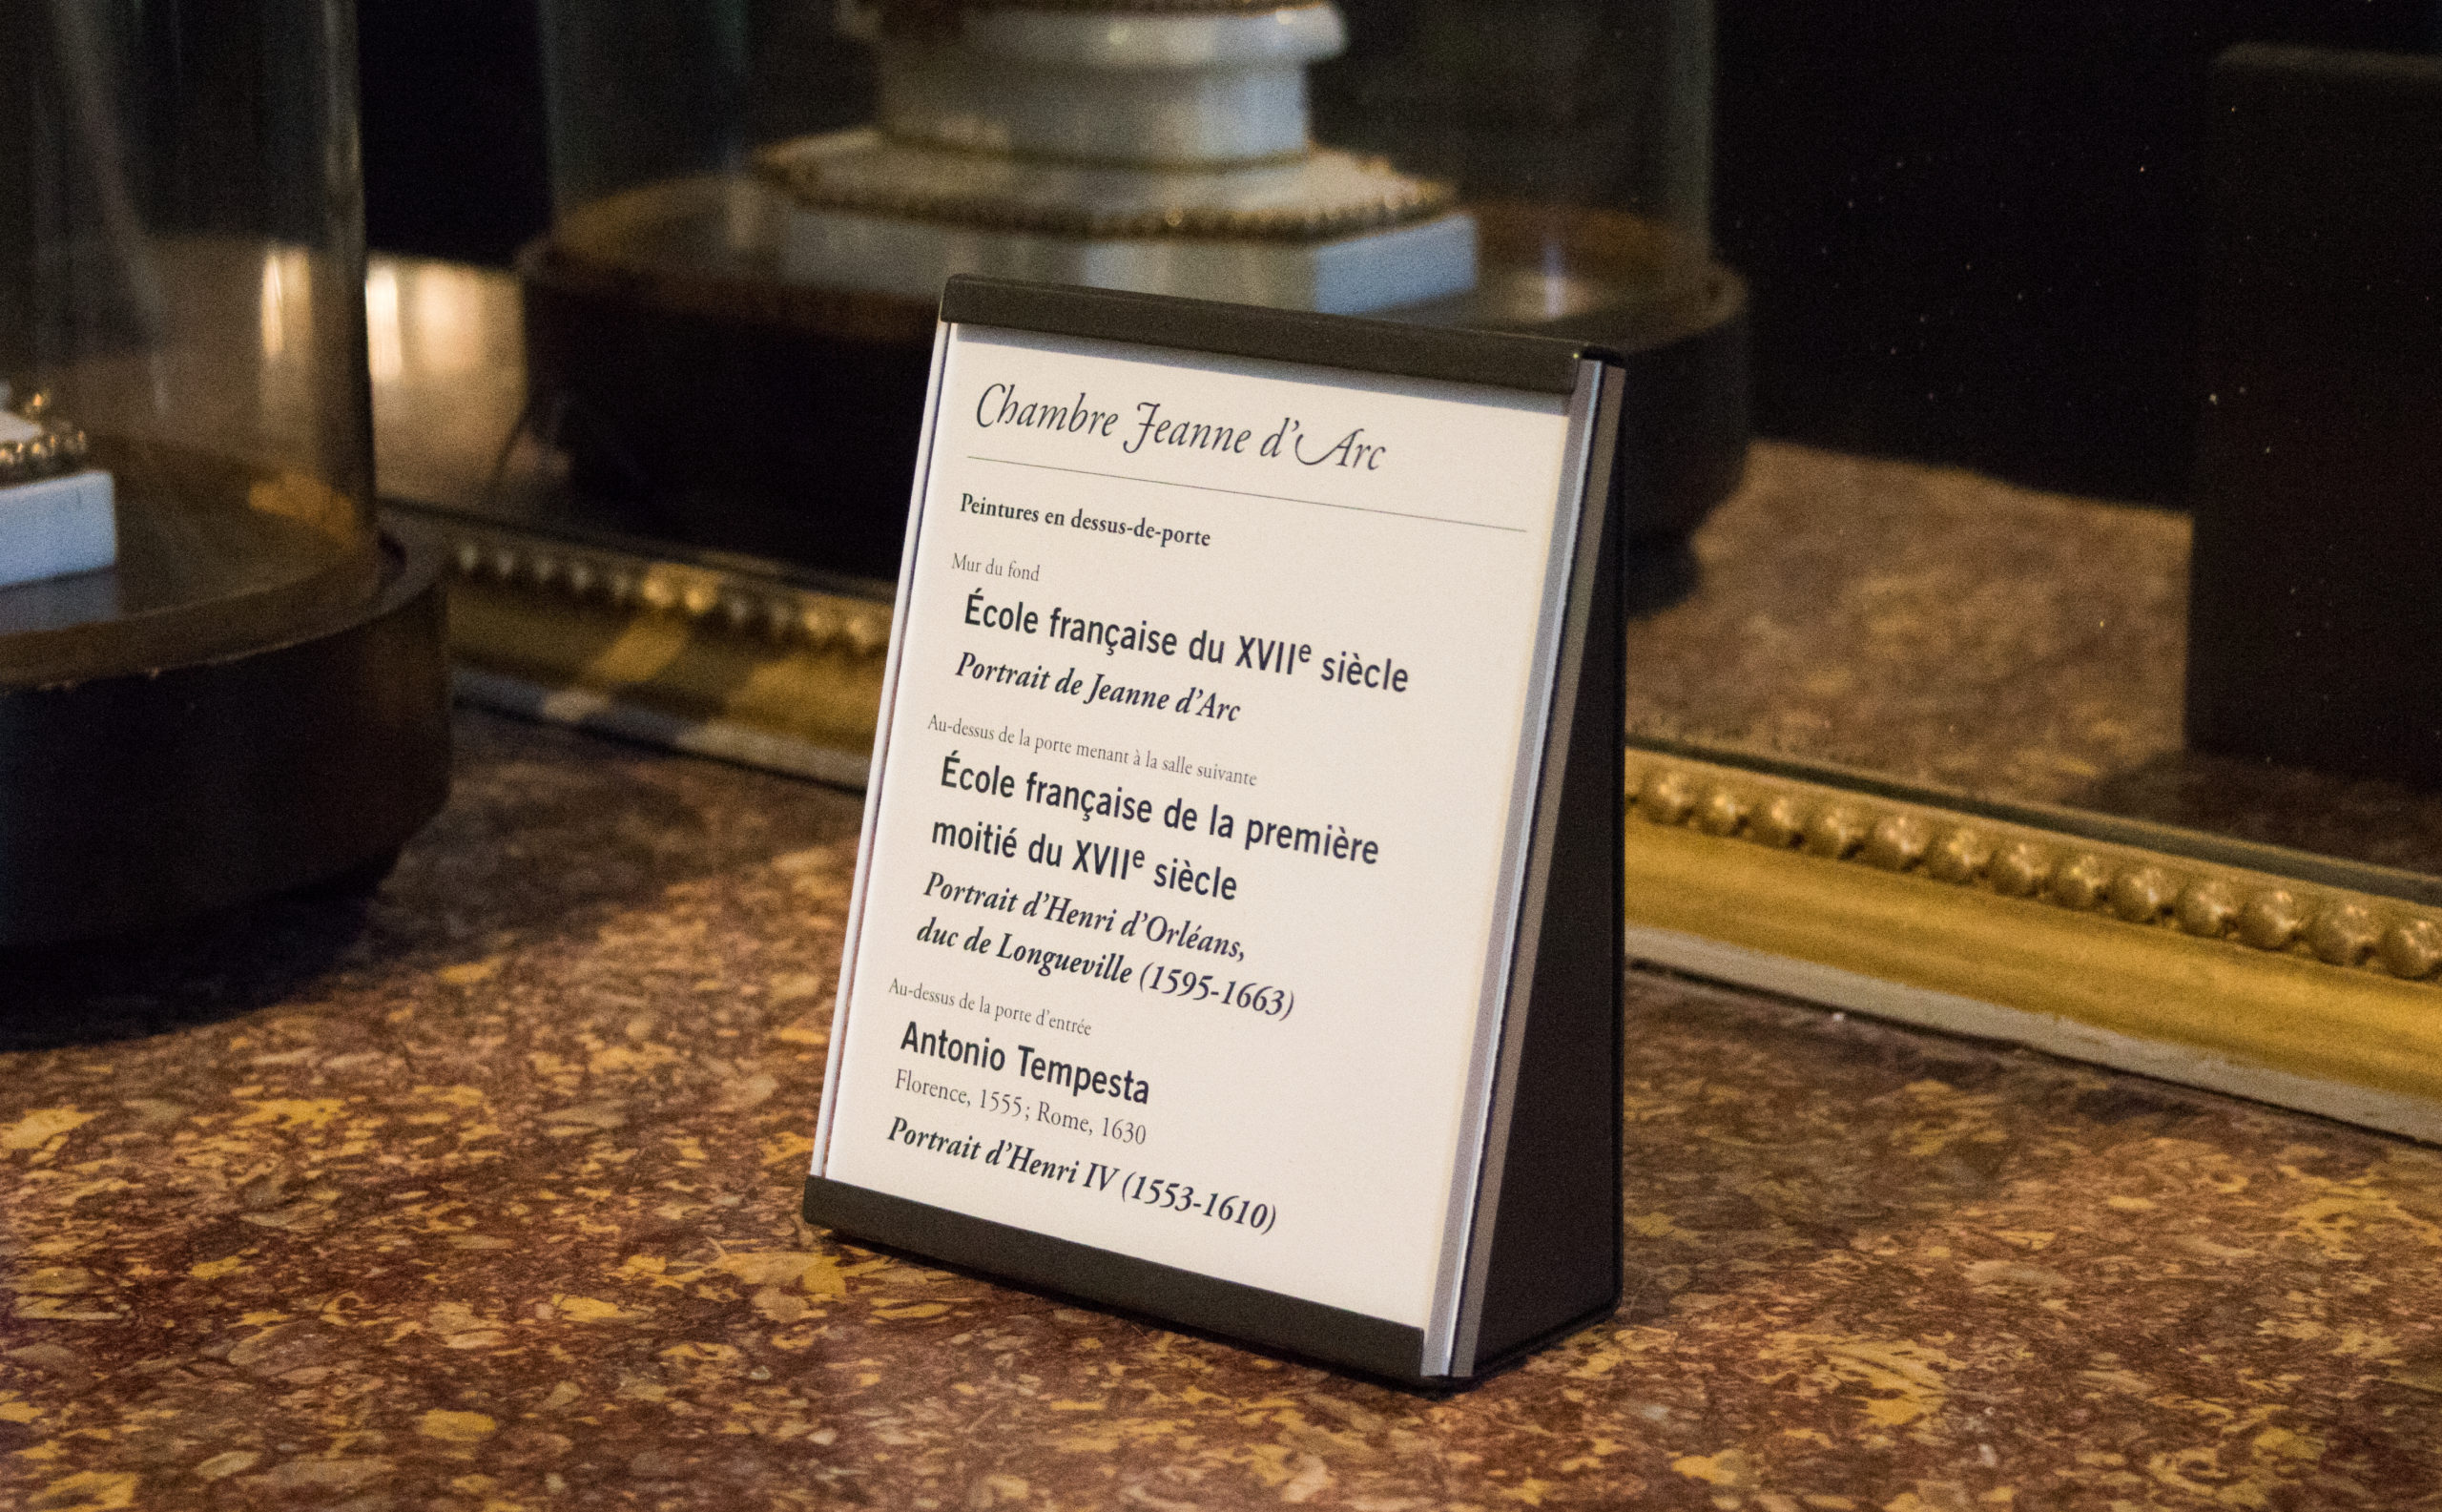 Chambre Jeanne d'Arc
Peintures en dessus-de-porte
Mur du fond
École française du XVIIe siècle
Portrait de Jeanne d'Arc
Au-dessus de la porte menant à la salle suivante
École française de la première
moitié du XVIIe siècle
Portrait d'Henri d'Orléans,
duc de Longueville (1595-1663)
Au-dessus de la porte d'entrée
Antonio Tempesta
Florence, 1555 ; Rome, 1630
Portrait d'Henri IV (1553-1610)